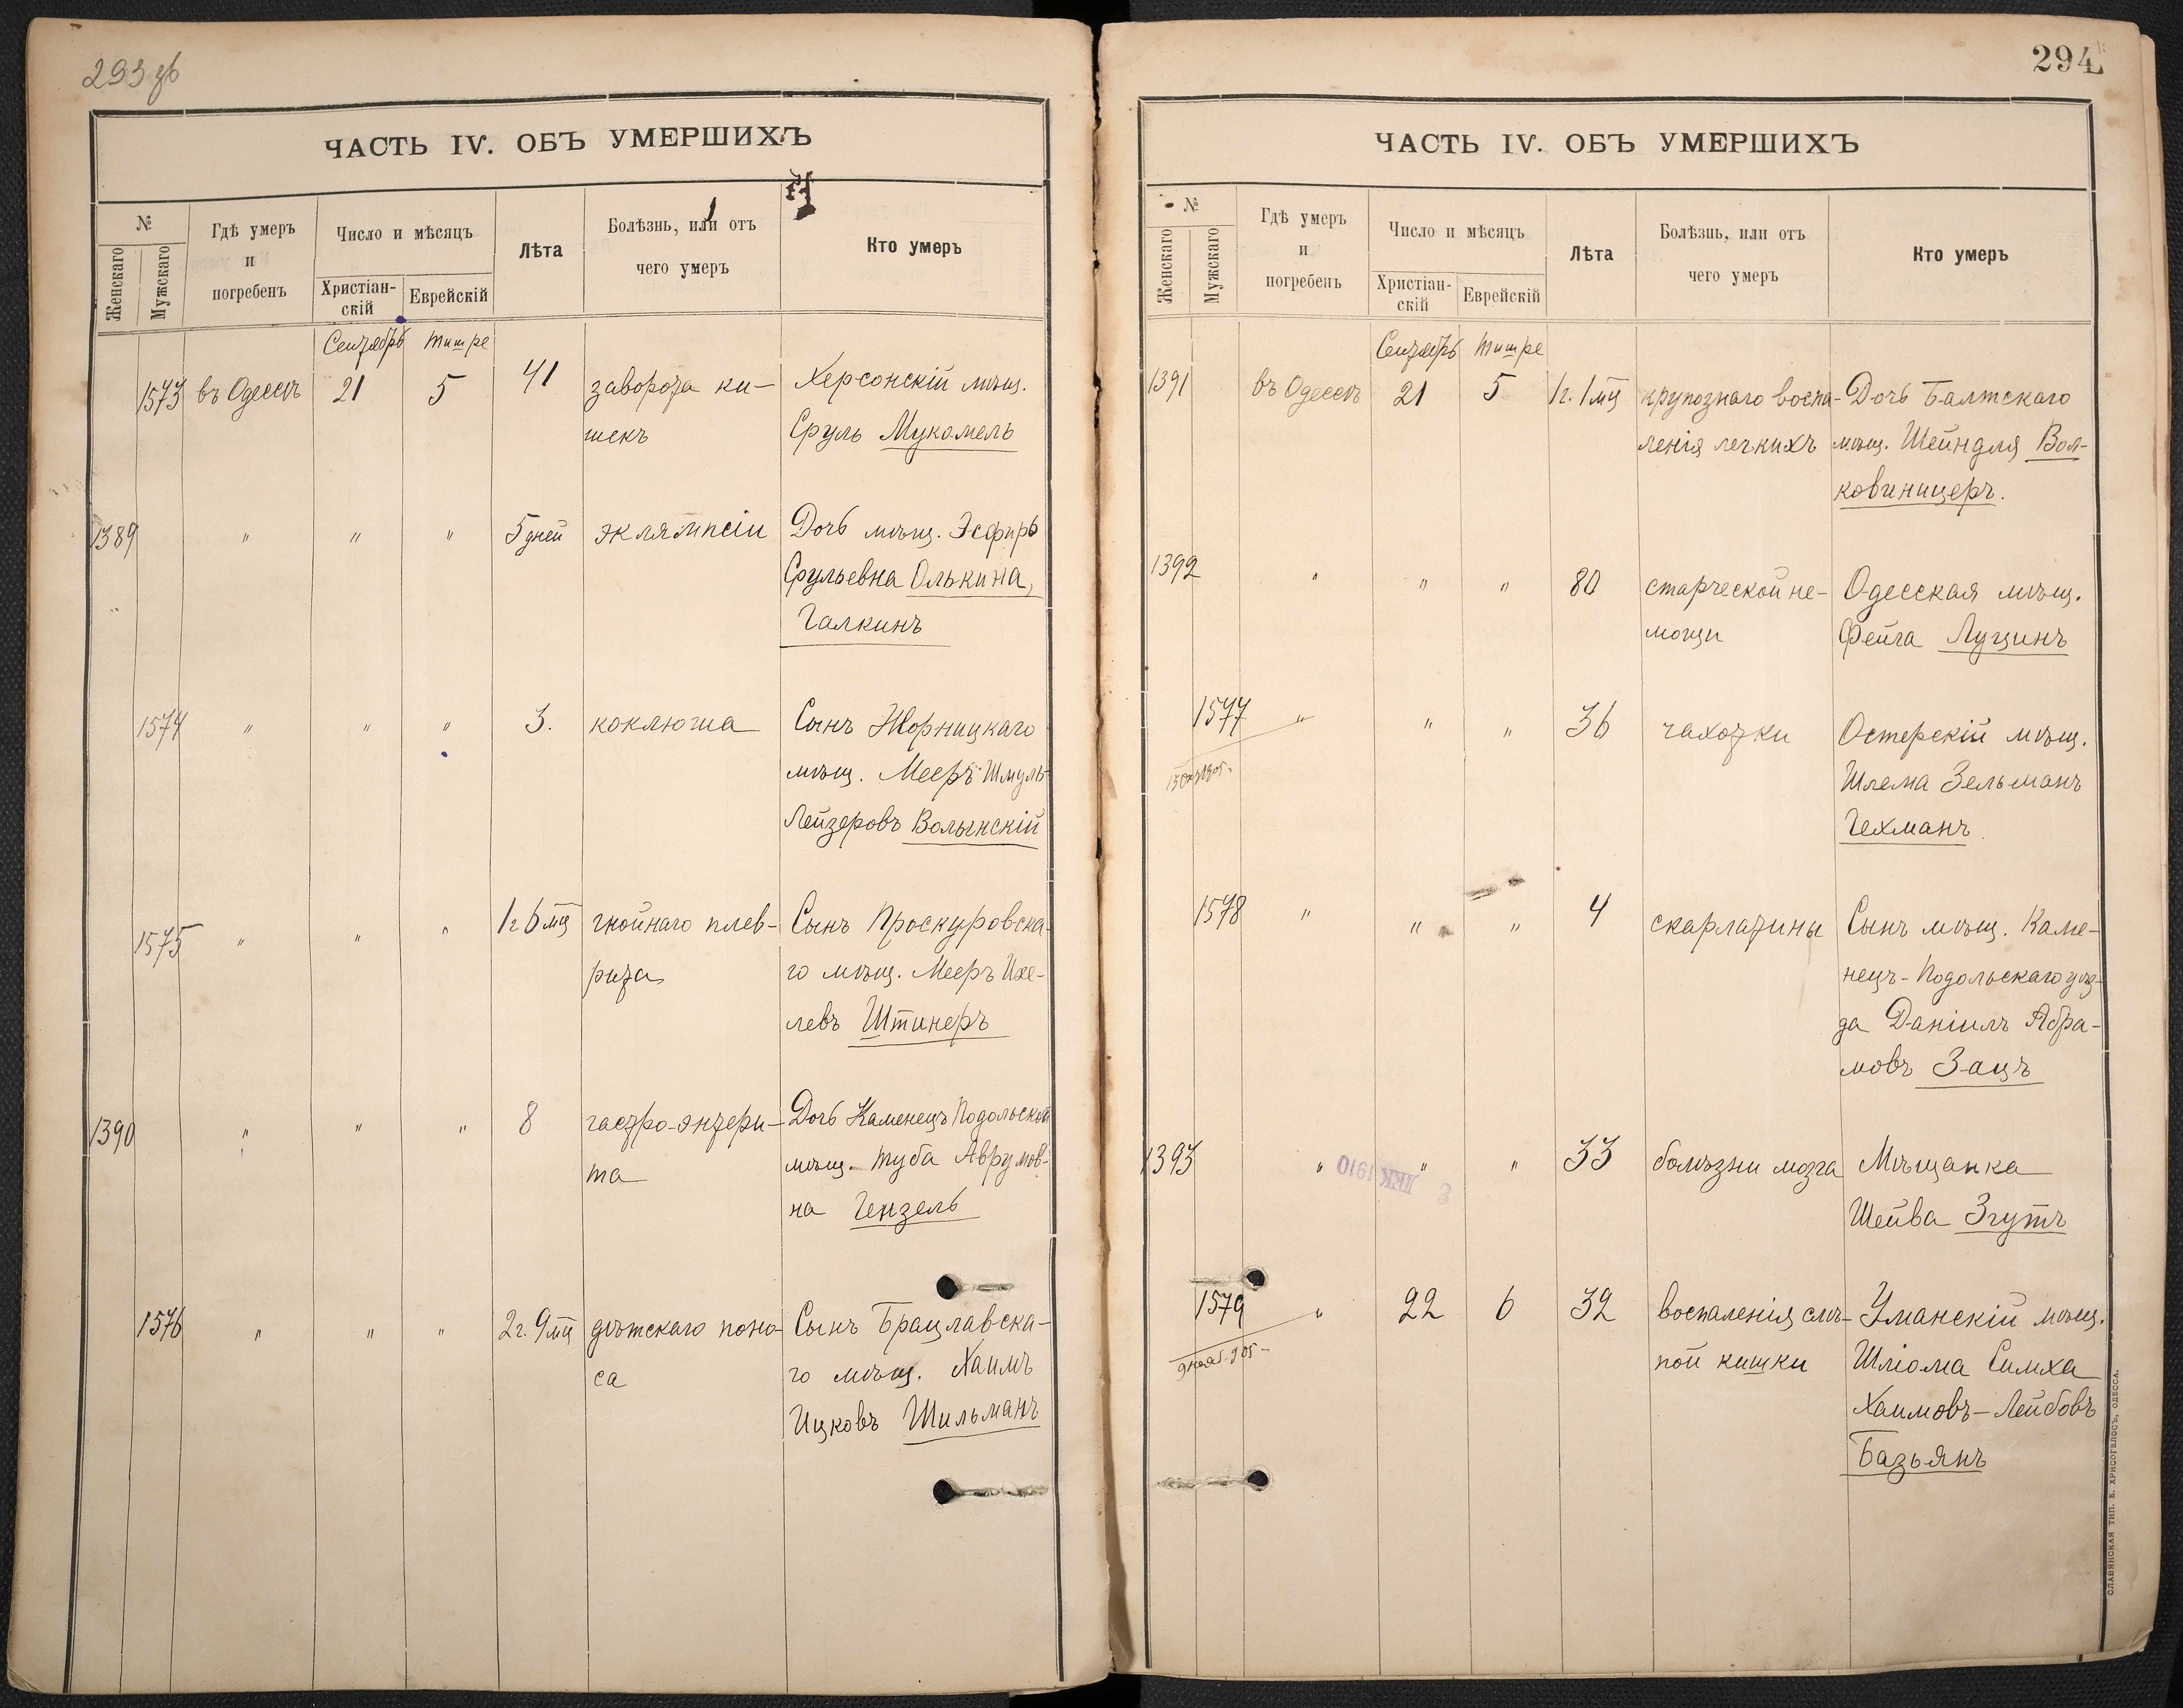 293 об
ЧАСТЬ IV. ОБЪ УМЕРШИХЪ
№
Женскаго
Мужскаго
Гдѣ умеръ
и
погребенъ
Число и мѣсяцъ
Христіан-
скій
Еврейскій
Лѣта
Болѣзнь, или отъ
чего умеръ
Кто умеръ
Сентябрь Тишре
1573 въ Одессѣ 21 5 41 заворота ки- Херсонскій мѣщ.
шекъ Сруль Мукомель
1389 " " " 5 дней эклямпсіи Дочь мѣщ. Эсфирь
Срульевна Олькина,
Галкинъ
1574 " " " 3. коклюша Сынъ Жорницкаго
мѣщ. Мееръ Шмуль-
Лейзеровъ Волынскій
1575 " " " 1 г 6 мц гнойнаго плев- Сынъ Проскуровска-
рита го мѣщ. Мееръ Ихе-
левъ Штинеръ
1390 " " " 8 гастро-энтери- Дочь Каменецъ Подольской
та мѣщ. Туба Аврумов-
на Гензель
1576 " " " 2 г. 9 мц дѣтскаго поно- Сынъ Брацлавска-
са го мѣщ. Хаимъ
Ицковъ Шильманъ
294
ЧАСТЬ IV. ОБЪ УМЕРШИХЪ
№
Женскаго
Мужскаго
Гдѣ умеръ
и
погребенъ
Число и мѣсяцъ
Христіан-
скій
Еврейскій
Лѣта
Болѣзнь, или отъ
чего умеръ
Кто умеръ
Сентябрь Тишре
1391 въ Одессѣ 21 5 1 г. 1 мц крупознаго воспа- Дочь Балтскаго
ленія легкихъ мѣщ. Шейндля Вол-
ковиницеръ.
1392 " " " 80 старческой не- Одесская мѣщ.
мощи Фейга Луцинъ
1577 " " " 36 чахотки Остерскій мѣщ.
Шлема Зельманъ
Гехманъ
1578 " " " 4 скарлатины Сынъ мѣщ. Каме-
нецъ-Подольскаго уѣз-
да Даніилъ Абра-
мовъ Зацъ
1393 " " " 33 болѣзни мозга Мѣщанка
Шейва Згутъ
2 ДЕК 1910
1579 " 22 6 32 воспаленія слѣ- Уманскій мѣщ.
9 нояб. 905 пой кишки Шліома Симха
Хаимовъ-Лейбовъ
Базьянъ
СЛАВЯНСКАЯ ТИП. Е. ХРИСОГЕЛОСЪ, ОДЕССА.